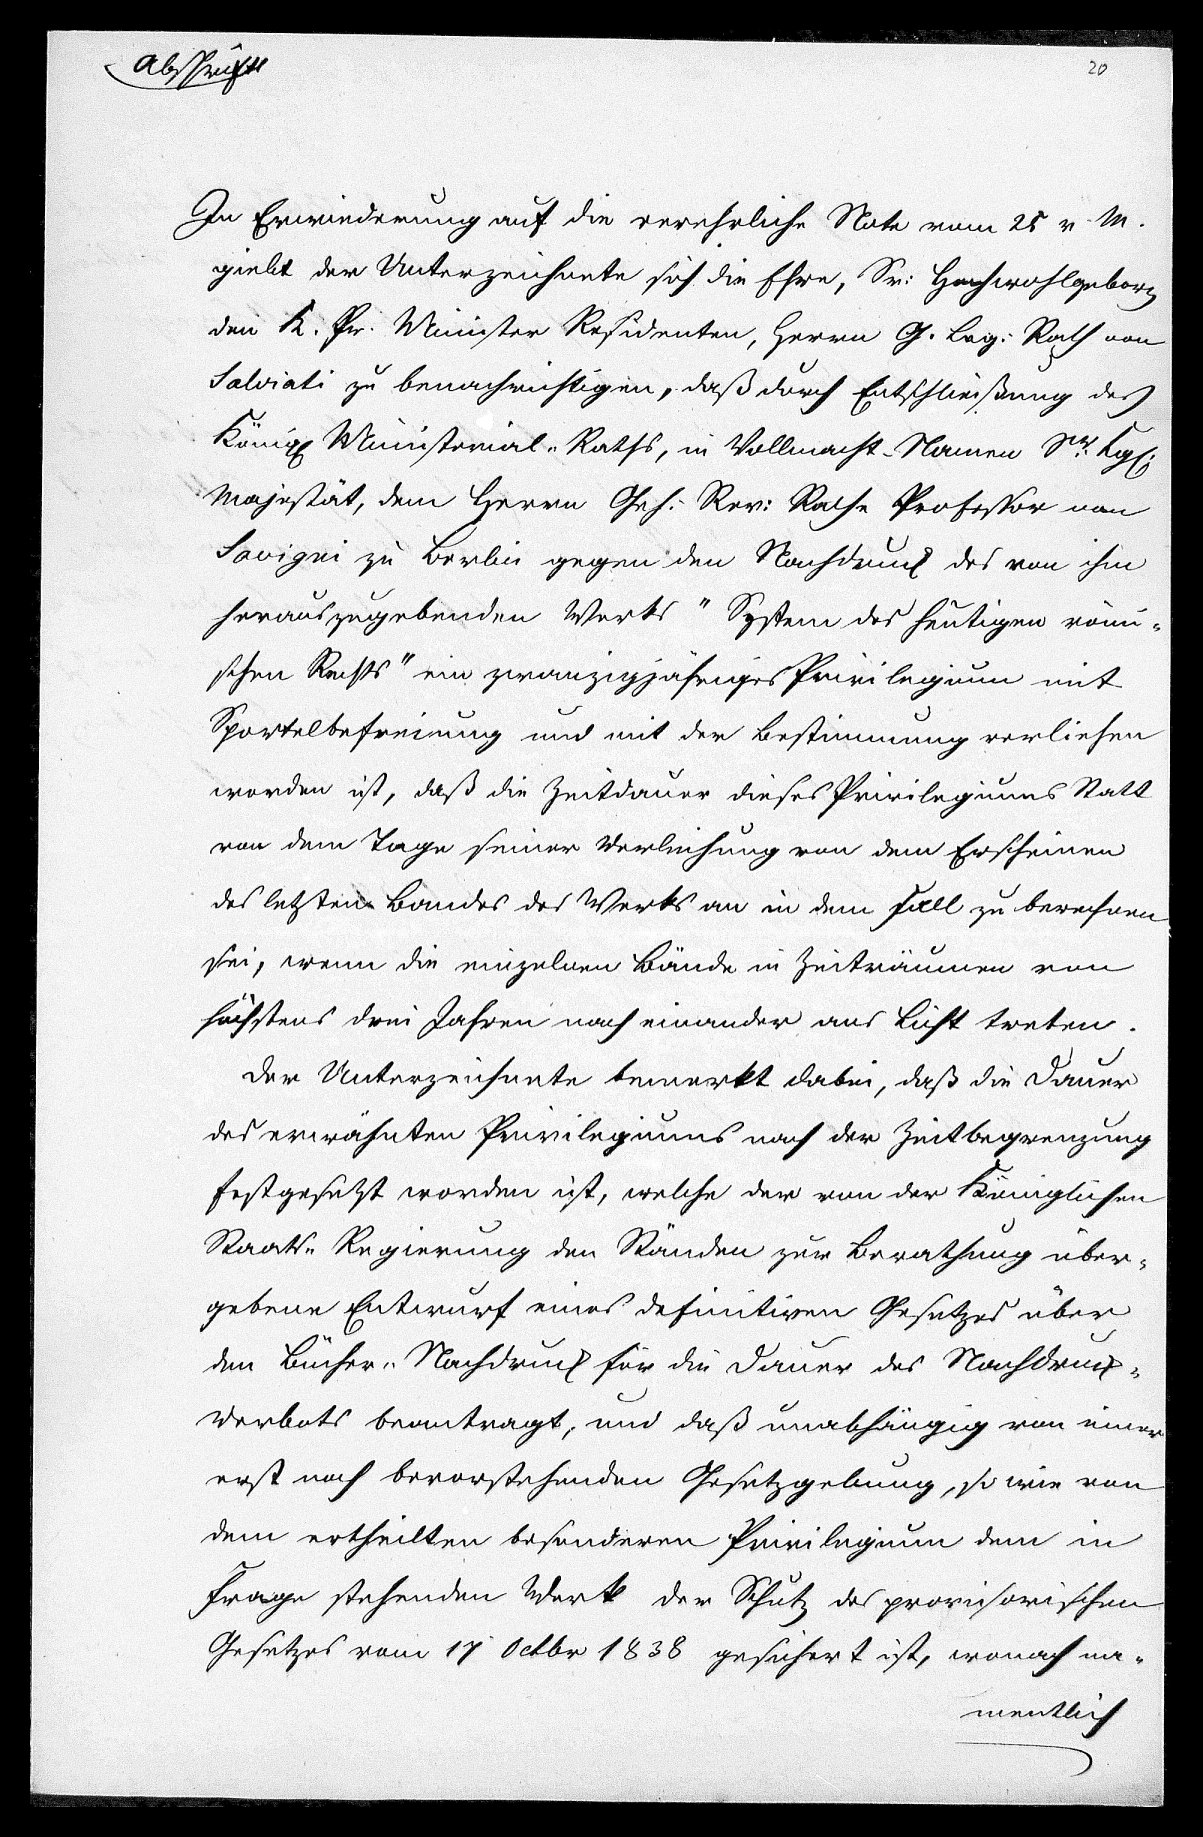 Abschrift
20
In Erwiederung auf die verehrliche Note vom 25 v. M.
giebt der Unterzeichnete sich die Ehre, Sr: Hochwohlgeborn
den K. Pr. Minister Residenten, Herrn G. Leg: Rath von
Salviati zu benachrichtigen, daß durch Entschließung des
Königl Ministerial-Raths, in Vollmacht-Namen Sr. Kgl:
Majestät, dem Herrn Geh: Rev: Rathe Professor von
Savigni zu Berlin gegen den Nachdruck des von ihm
herauszugebenden Werks "System des heutigen römi-
schen Rechts" ein zwanzigjähriges Privilegium mit
Sportelbefreiung und mit der Bestimmung verliehen
worden ist, daß die Zeitdauer dieses Privilegiums Statt
von dem Tage seiner Verleihung von dem Erscheinen
des letzten Bandes des Werks an in dem Fall zu berechnen
sei, wenn die einzelnen Bände in Zeiträumen von
höchstens drei Jahren nach einander ans Licht treten.
Der Unterzeichnete bemerkt dabei, daß die Dauer
des erwähnten Privilegiums nach der Zeitbegrenzung
festgesetzt worden ist, welche der von der Königlichen
Staats-Regierung den Ständen zur Berathung über-
gebene Entwurf eines definitiven Gesetzes über
den Bücher-Nachdruck für die Dauer des Nachdruck-
Verbots beantragt, und daß unabhängig von einer
erst noch bevorstehenden Gesetzgebung, so wie von
dem ertheilten besonderen Privilegium dem in
Frage stehenden Werk der Schutz des provisorischen
Gesetzes vom 17 Octbr 1838 gesichert ist, wonach na-
mentlich